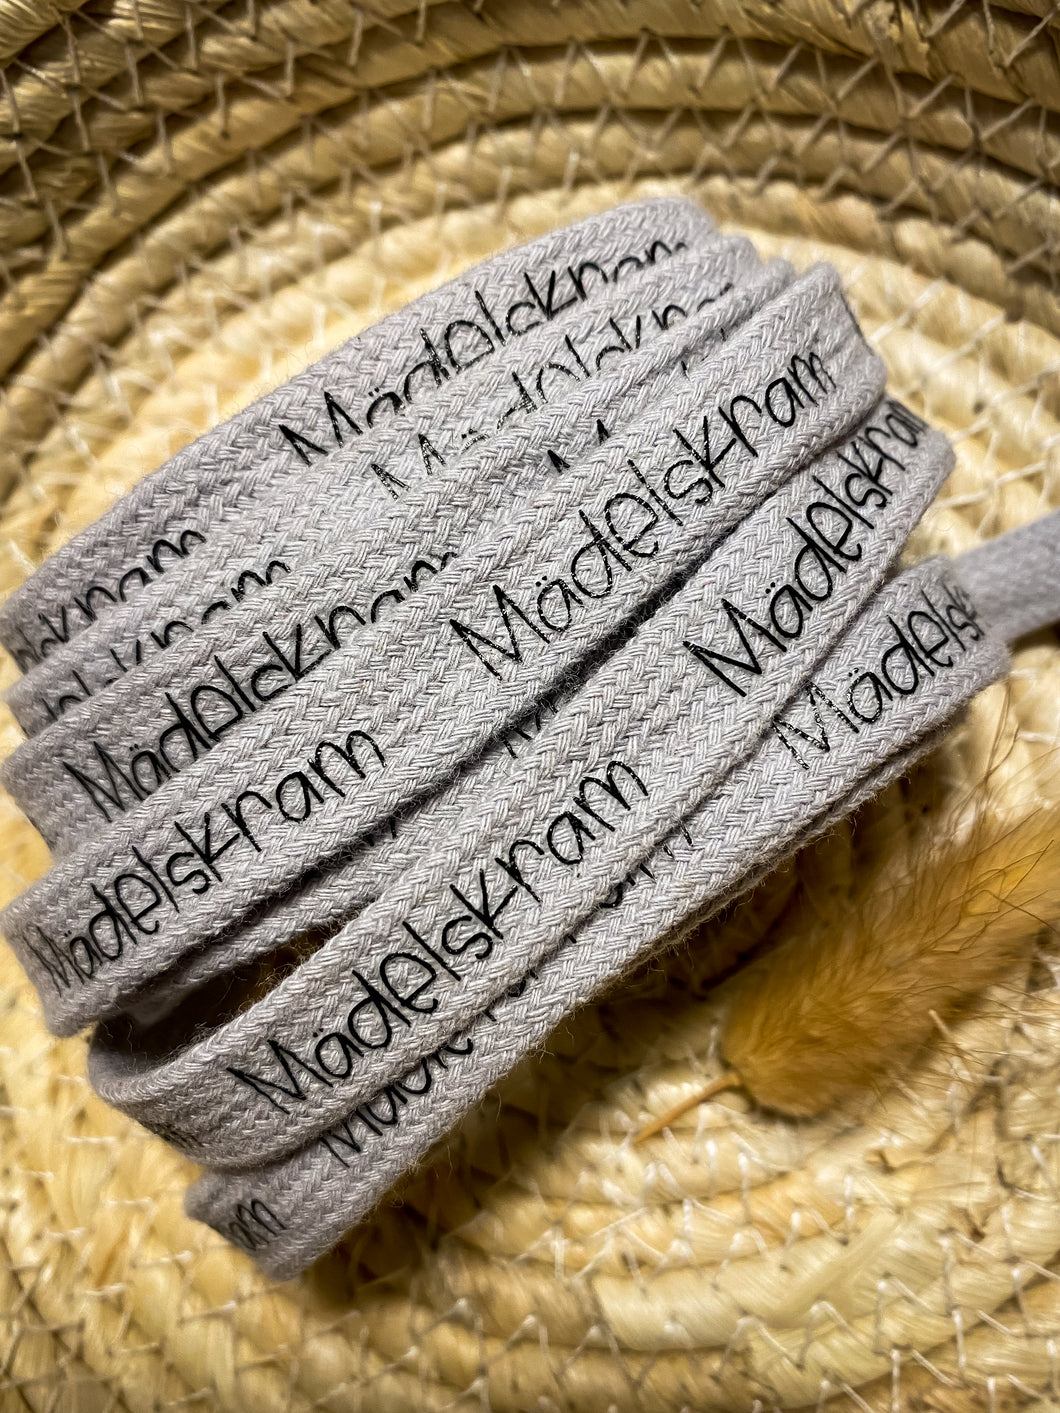 Mädelskram
Mädelskram
Mädelskram
Mädelskram
Mädelskram
Mädelskram
Mädelskram
Mädelskram
Mädelsk